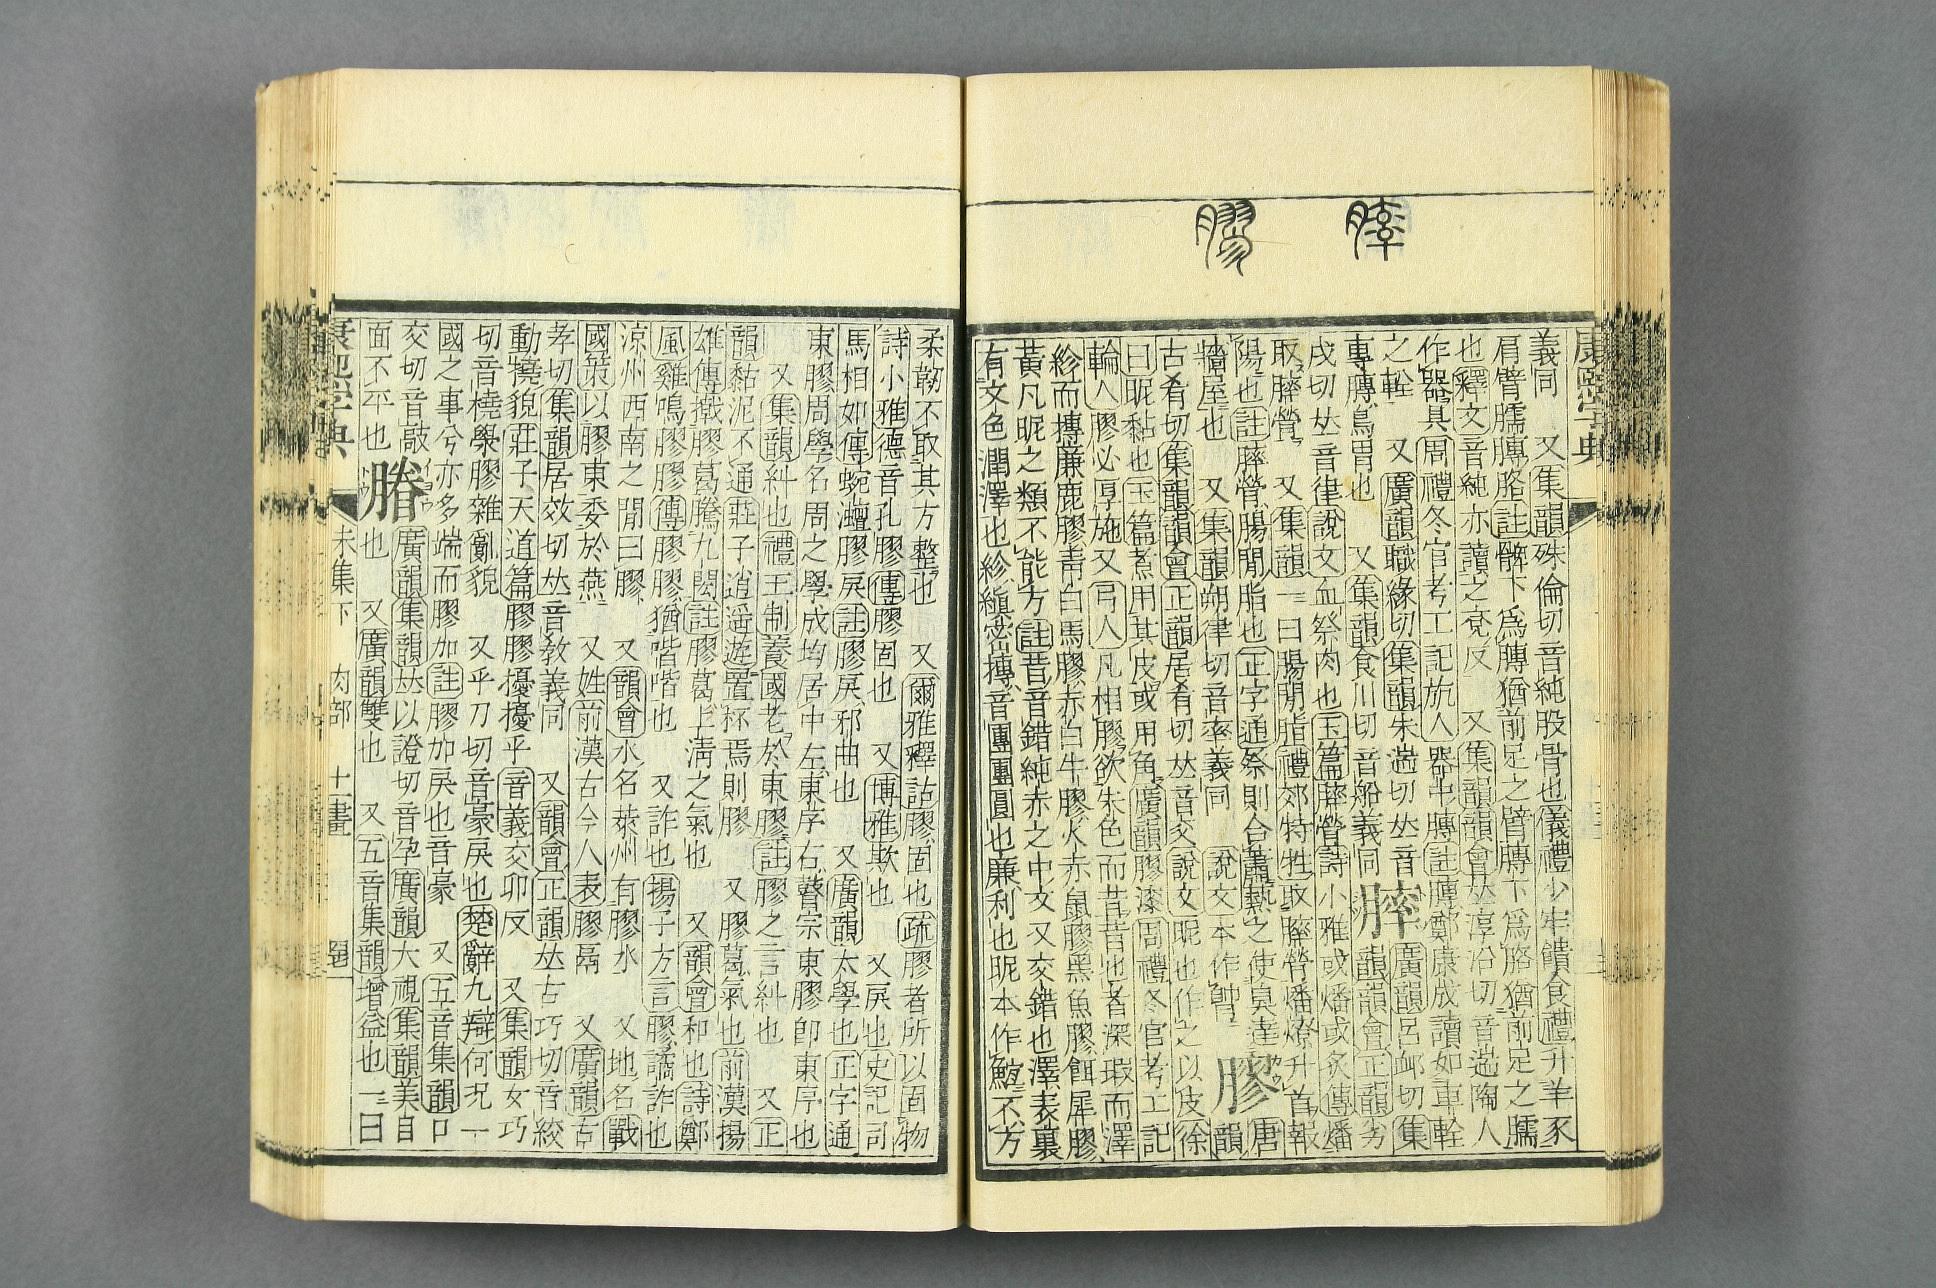 膟
膠
康熙字典
義同　又集韻殊倫切音純股骨也儀禮少牢饋食禮升羊豕
肩臂臑膞胳註髀下爲膞猶前足之臂膞下爲胳猶前足之臑
也釋文音純亦讀之兗反　又集韻韻會𠀤淳沿切音遄陶人
作器具周禮冬官考工記旊人器中膞註膞鄭康成讀如車輇
之輇　又廣韻職緣切集韻朱遄切𠀤音
專膞鳥胃也　又集韻食川切音船義同
膟
廣韻呂䘏切集
韻韻會正韻劣
戌切𠀤音律說文血祭肉也玉篇膟膋詩小雅或燔或炙傳燔
取膟膋　又集韻一曰腸閒脂禮郊特牲取膟膋燔燎升首報
陽也註膟膋腸閒脂也正字通祭則合蕭爇之使臭達
牆屋也　又集韻朔律切音率義同　說文本作𦚈
膠
唐
韻
古肴切集韻韻會正韻居肴切𠀤音交說文昵也作之以皮徐
曰昵黏也玉篇煮用其皮或用角廣韻膠漆周禮冬官考工記
輪人膠必厚施又弓人凡相膠欲朱色而昔昔也者深瑕而澤
紾而摶廉鹿膠靑白馬膠赤白牛膠火赤鼠膠黑魚膠餌犀膠
黃凡昵之類不能方註昔音錯純赤之中文又交錯也澤表裏
有文色潤澤也紾縝密摶音團團圓也廉利也昵本作䵑不方
柔韌不取其方整也　又爾雅釋詁膠固也疏膠者所以固物
詩小雅德音孔膠傳膠固也　又博雅欺也　又戾也史記司
馬相如傳蜿灗膠戾註膠戾邪曲也　又廣韻太學也正字通
東膠周學名周之學成均居中左東序右瞽宗東膠卽東序也
　又集韻糾也禮王制養國老於東膠註膠之言糾也　又正
韻黏泥不通莊子逍遙遊置杯焉則膠　又膠葛氣也前漢揚
雄傳撠膠葛騰九閎註膠葛上淸之氣也　又韻會和也詩鄭
風雞鳴膠膠傳膠膠猶喈喈也　又詐也揚子方言膠譎詐也
涼州西南之閒曰膠　又韻會水名萊州有膠水　又地名戰
國策以膠東委於燕　又姓前漢古今人表膠鬲　又廣韻古
孝切集韻居效切𠀤音敎義同　又韻會正韻𠀤古巧切音絞
動撓貌莊子天道篇膠膠擾擾乎音義交卯反　又集韻女巧
切音橈學膠雜亂貌　又乎刀切音豪戾也楚辭九辯何況一
國之事兮亦多端而膠加註膠加戾也音豪　又五音集韻口
交切音敲
面不平也
䐯
廣韻集韻𠀤以證切音孕廣韻大視集韻美目
也　又廣韻雙也　又五音集韻增益也一曰
康熙字典
未集下　肉部　十一畫